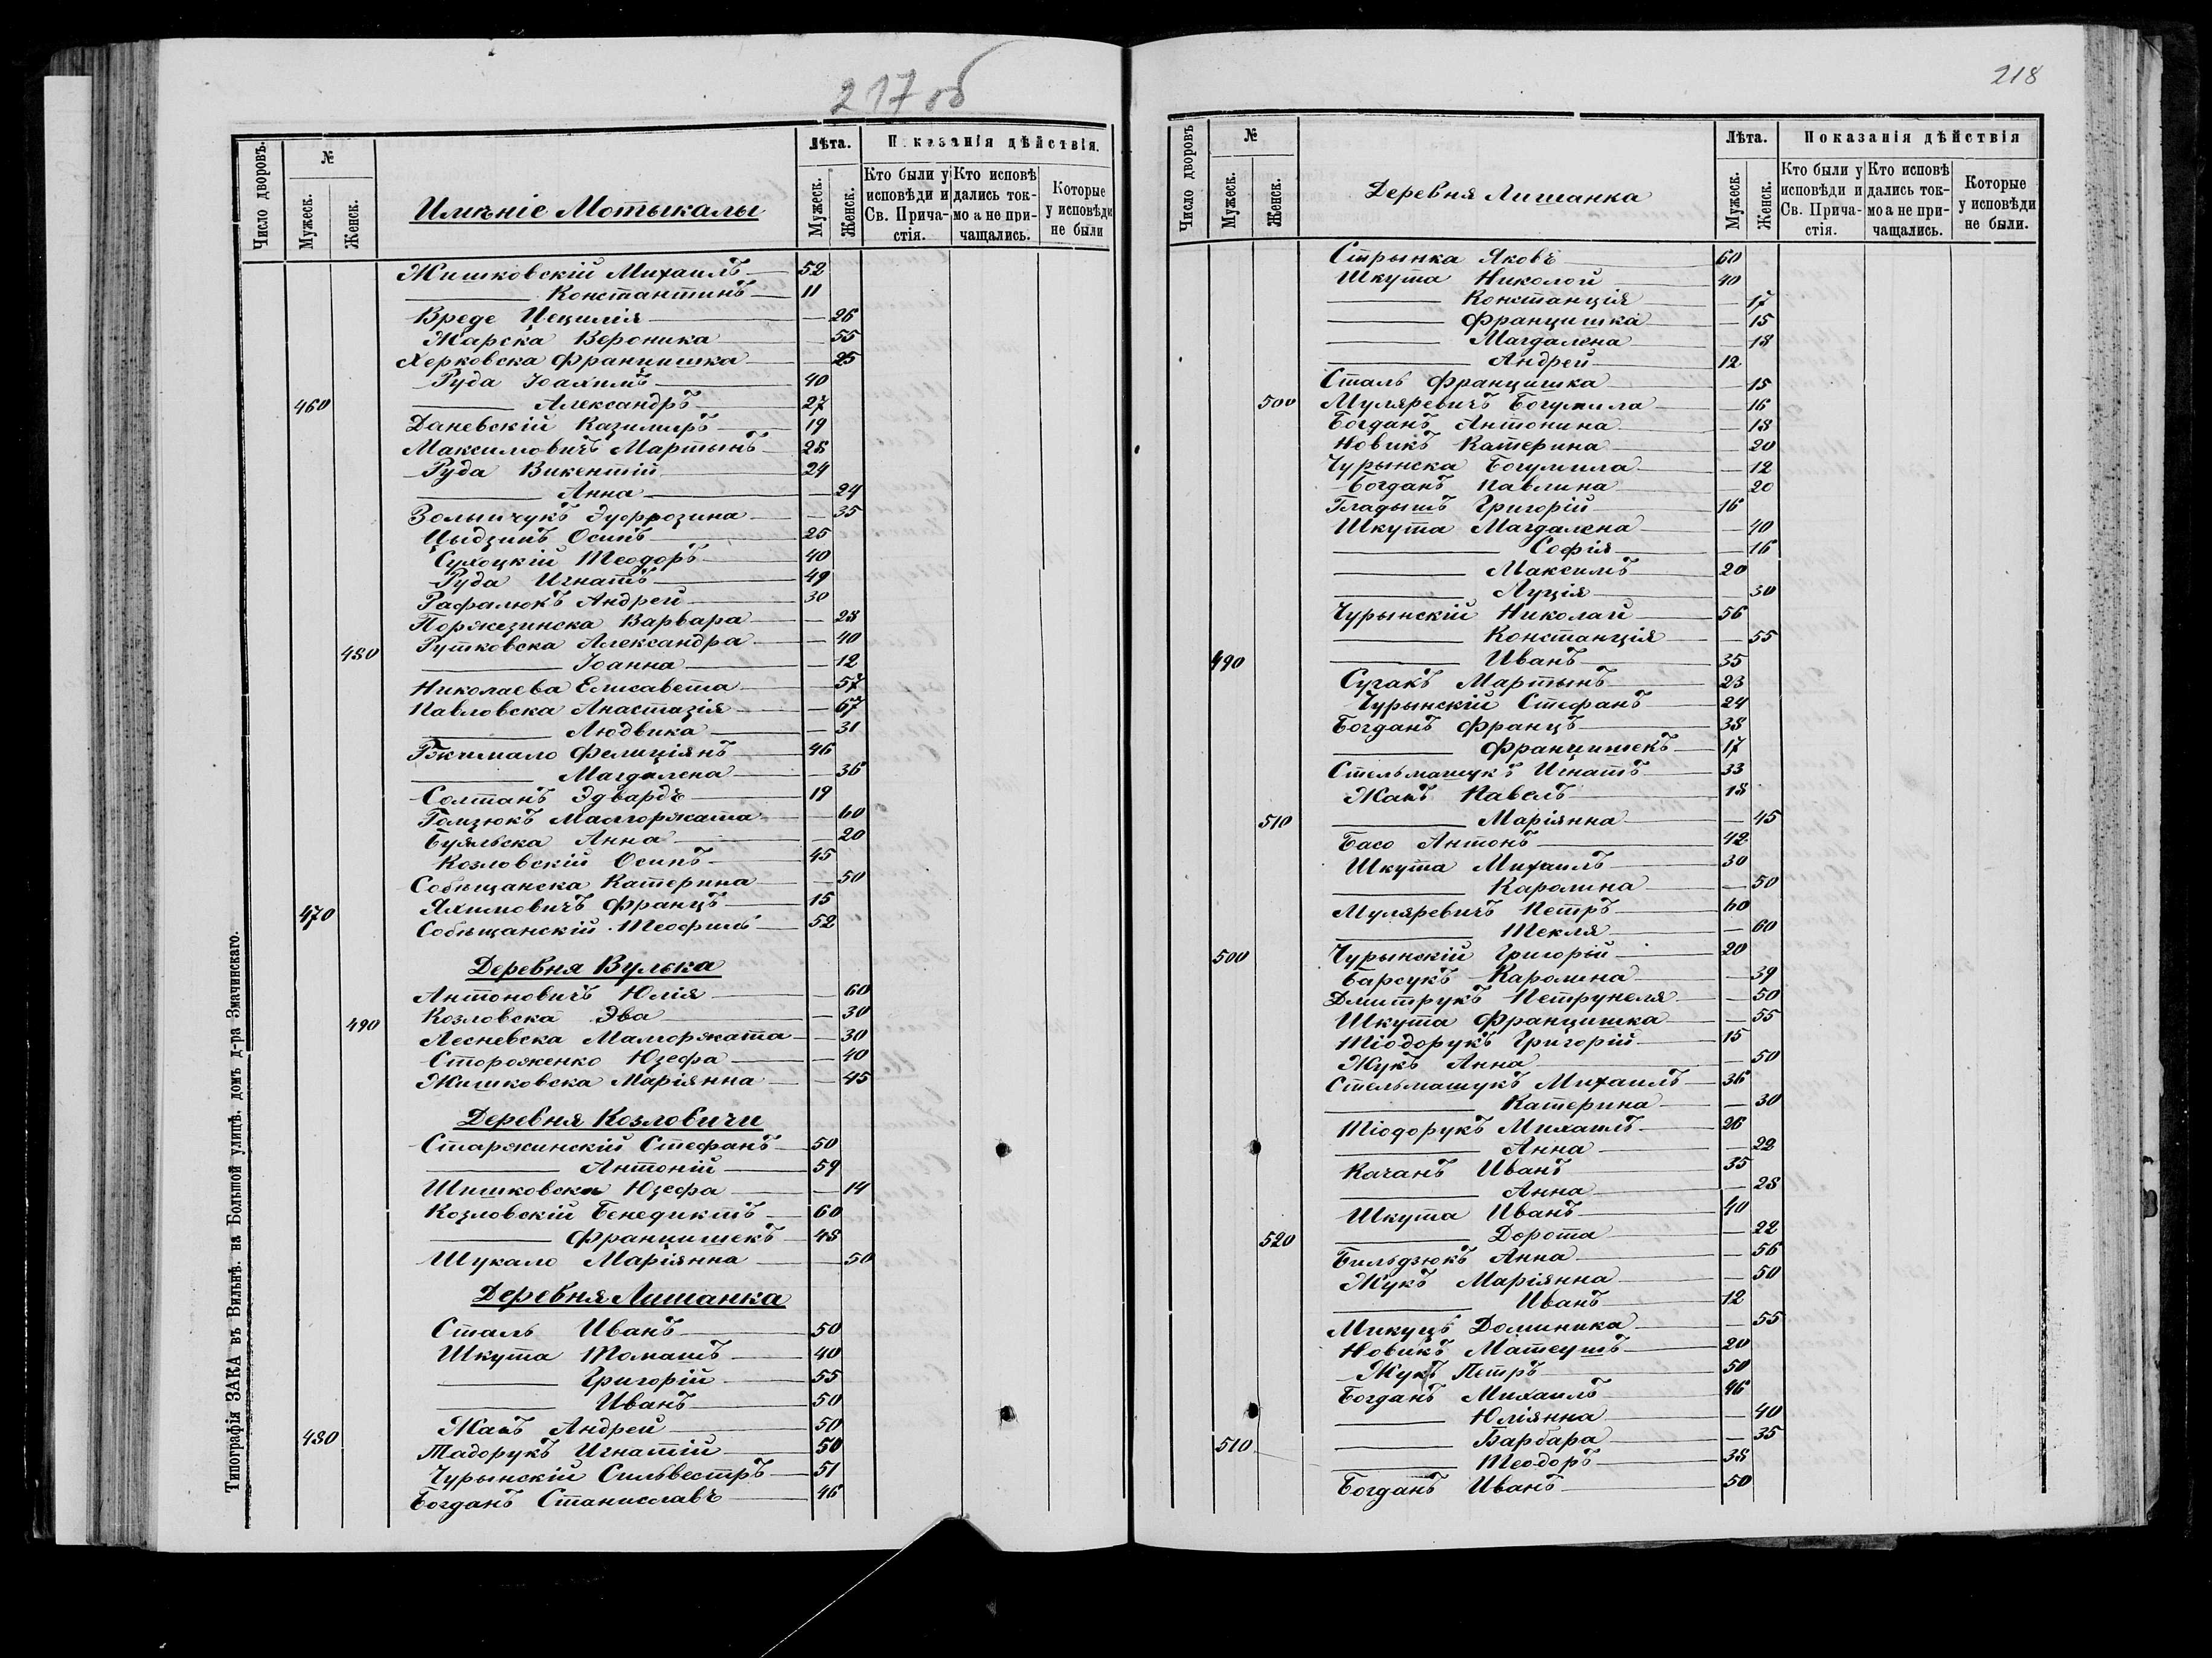 217 об
Число дворовъ.
№
Мужеск.
Женск.
Имѣніе Мотыкалы
Лѣта.
Мужеск.
Женск.
Показанія дѣйствія.
Кто были у исповѣди и Св. Причастія.
Кто исповѣдались токмо а не причащались.
Которые у исповѣди не были
Жишковскій Михаилъ — 52
——— Константинъ — 11
Вреде Цецилія — 26
Жарска Вероника — 55
Херковска Францишка — 25
Руда Іоахимъ — 40
460 ——— Александръ — 27
Даневскій Казимиръ — 19
Максимовичъ Мартынъ — 28
Руда Викентій — 24
——— Анна — 24
Золыичукъ Эуфрозина — 35
Цыдзикъ Осипъ — 25
Сухоцкій Теодоръ — 40
Руда Игнатъ — 49
Рафалюкъ Андрей — 30
Поржезинска Варвара — 28
Рутковска Александра — 40
480 ——— Іоанна — 12
Николаева Елисавета — 57
Павловска Анастазія — 67
——— Людвика — 31
Бкчимало Фелиціянъ — 46
——— Магдалена — 36
Солтанъ Эдвардъ — 19
Гомзюкъ Малгоржата — 60
Буяльска Анна — 20
Козловскій Осипъ — 45
Собѣщанска Катерина — 50
470 Яхимовичъ Францъ — 15
Собѣщанскій Теофиль — 52
Деревня Вулька
Антоновичъ Юлія — 60
490 Козловска Эва — 30
Лесневска Малгоржата — 30
Стороженко Юзефа — 40
Жишковска Маріянна — 45
Деревня Козловичи
Старжинскій Стефанъ — 50
——— Антоній — 59
Шишковска Юзефа — 14
Козловскій Бенедиктъ — 60
——— Францишекъ — 48
Шукало Маріянна — 50
Деревня Лишанка
Сталь Иванъ — 50
Шкута Томашъ — 40
——— Григорій — 55
——— Иванъ — 50
480 Жакъ Андрей — 50
Тадорукъ Игнатій — 50
Чурынскій Сильвестръ — 51
Богданъ Станиславъ — 46
Типографія ЗАКА въ Вильнѣ. на Большой улицѣ, домъ д-ра Змачинскаго.
218
Число дворовъ
№
Мужеск.
Женск.
Деревня Лишанка
Лѣта.
Мужеск.
Женск.
Показанія дѣйствія
Кто были у исповѣди и Св. Причастія.
Кто исповѣдались токмо а не причащались.
Которые у исповѣди не были.
Стрынка Яковъ — 60
Шкута Николой — 40
——— Констанція — 17
——— Францишка — 15
——— Магдалена — 18
——— Андрей — 12
Сталь Францишка — 15
500 Муляревичъ Богумила — 16
Богданъ Антонина — 18
Новикъ Катерина — 20
Чурынска Богумила — 12
Богданъ Павлина — 20
Гладышъ Григорій — 16
Шкута Магдалена — 40
——— Софія — 16
——— Максимъ — 20
——— Луція — 30
Чурынскій Николай — 56
——— Констанція — 55
490 ——— Иванъ — 35
Сугакъ Мартынъ — 23
Чурынскій Стефанъ — 24
Богданъ Францъ — 38
——— Францишекъ — 17
Стельмашукъ Игнатъ — 33
Жакъ Павелъ — 18
510 ——— Маріянна — 45
Басо Антонъ — 42
Шкута Михаилъ — 30
——— Каролина — 50
Муляревичъ Петръ — 60
——— Текля — 60
500 Чурынскій Григорій — 20
Барсукъ Каролина — 39
Дмитрукъ Петрунеля — 50
Шкута Францишка — 55
Тіодорукъ Григорій — 15
Жукъ Анна — 50
Стельмашукъ Михаилъ — 36
——— Катерина — 30
Тіодорукъ Михаилъ — 26
——— Анна — 22
Качанъ Иванъ — 35
——— Анна — 28
Шкута Иванъ — 40
520 ——— Дорота — 22
Бильдзюкъ Анна — 56
Жукъ Маріянна — 50
——— Иванъ — 12
Микуцъ Доминика — 55
Новикъ Матеушъ — 20
Жукъ Петръ — 50
Богданъ Михаилъ — 46
——— Юліянна — 40
510 ——— Барбара — 35
——— Теодоръ — 38
Богданъ Иванъ — 50